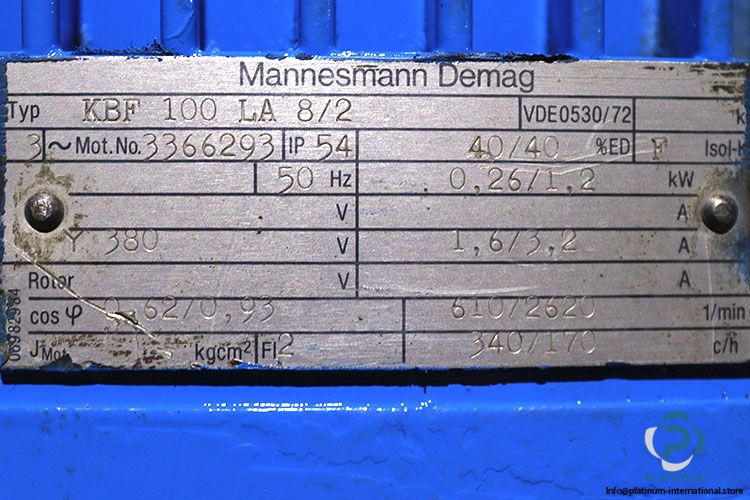 Mannesmann Demag
Typ KBF 100 LA 8/2 VDE0530/72 k
3 ~ Mot.No. 3366293 IP 54 40/40 %ED F Isol-K
50 Hz 0,26/1,2 kW
V A
Y 380 V 1,6/3,2 A
Rotor V A
cos φ 0,62/0,93 610/2620 1/min
JMot kgcm² FI 2 340/170 c/h
06982984
PLATINUM
Info@platinum-international.store